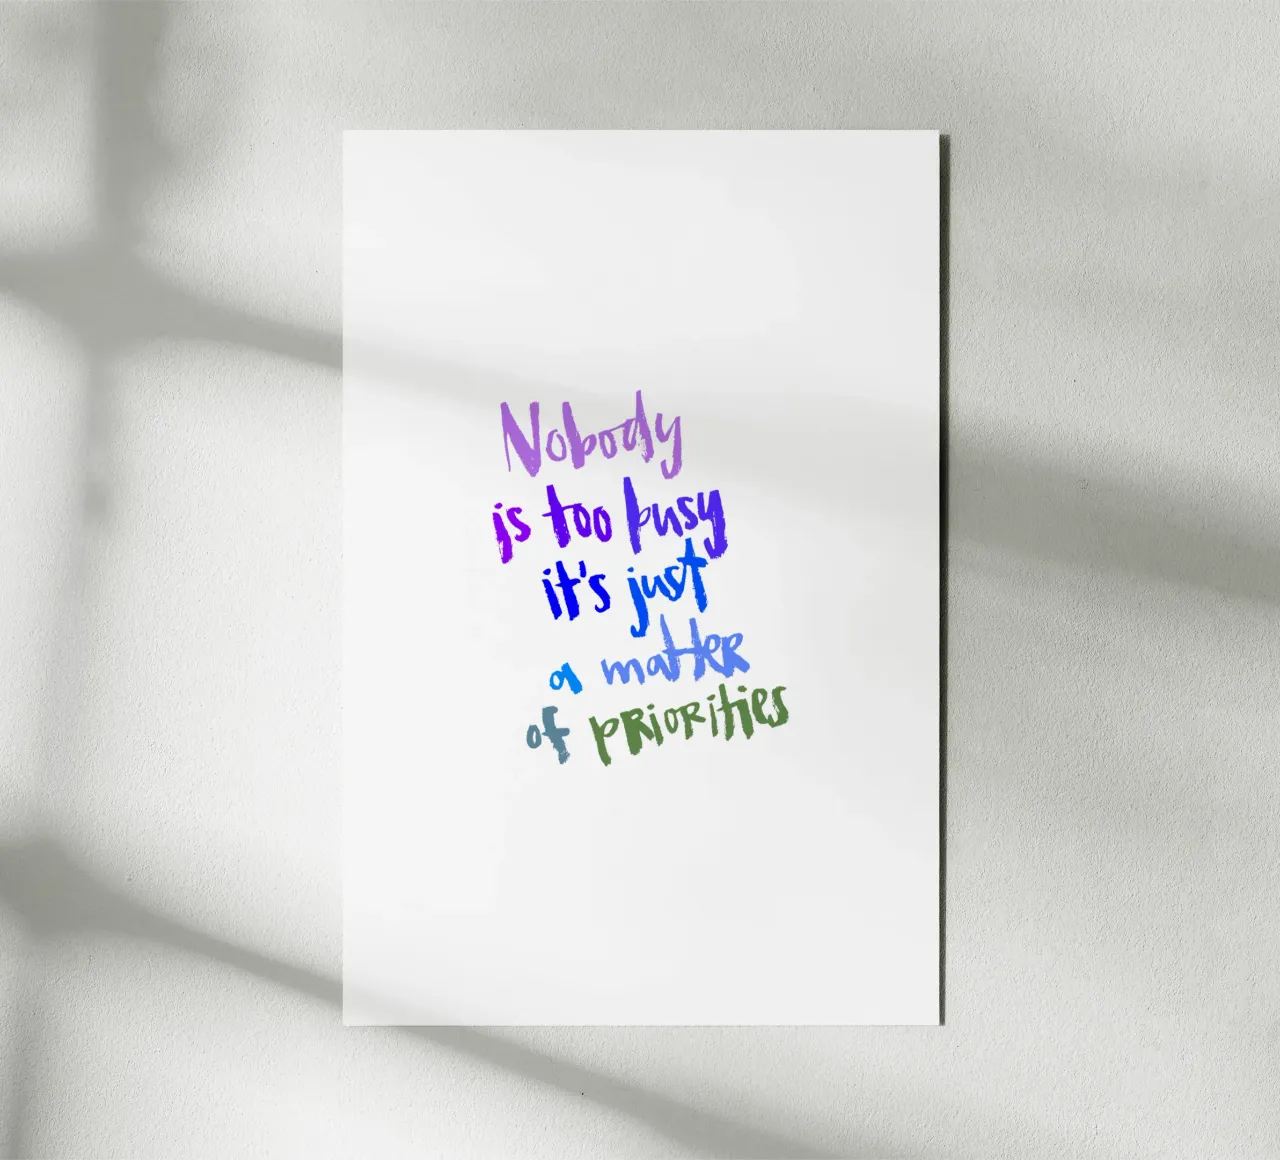 Nobody
is too busy
it's just
a matter
of priorities